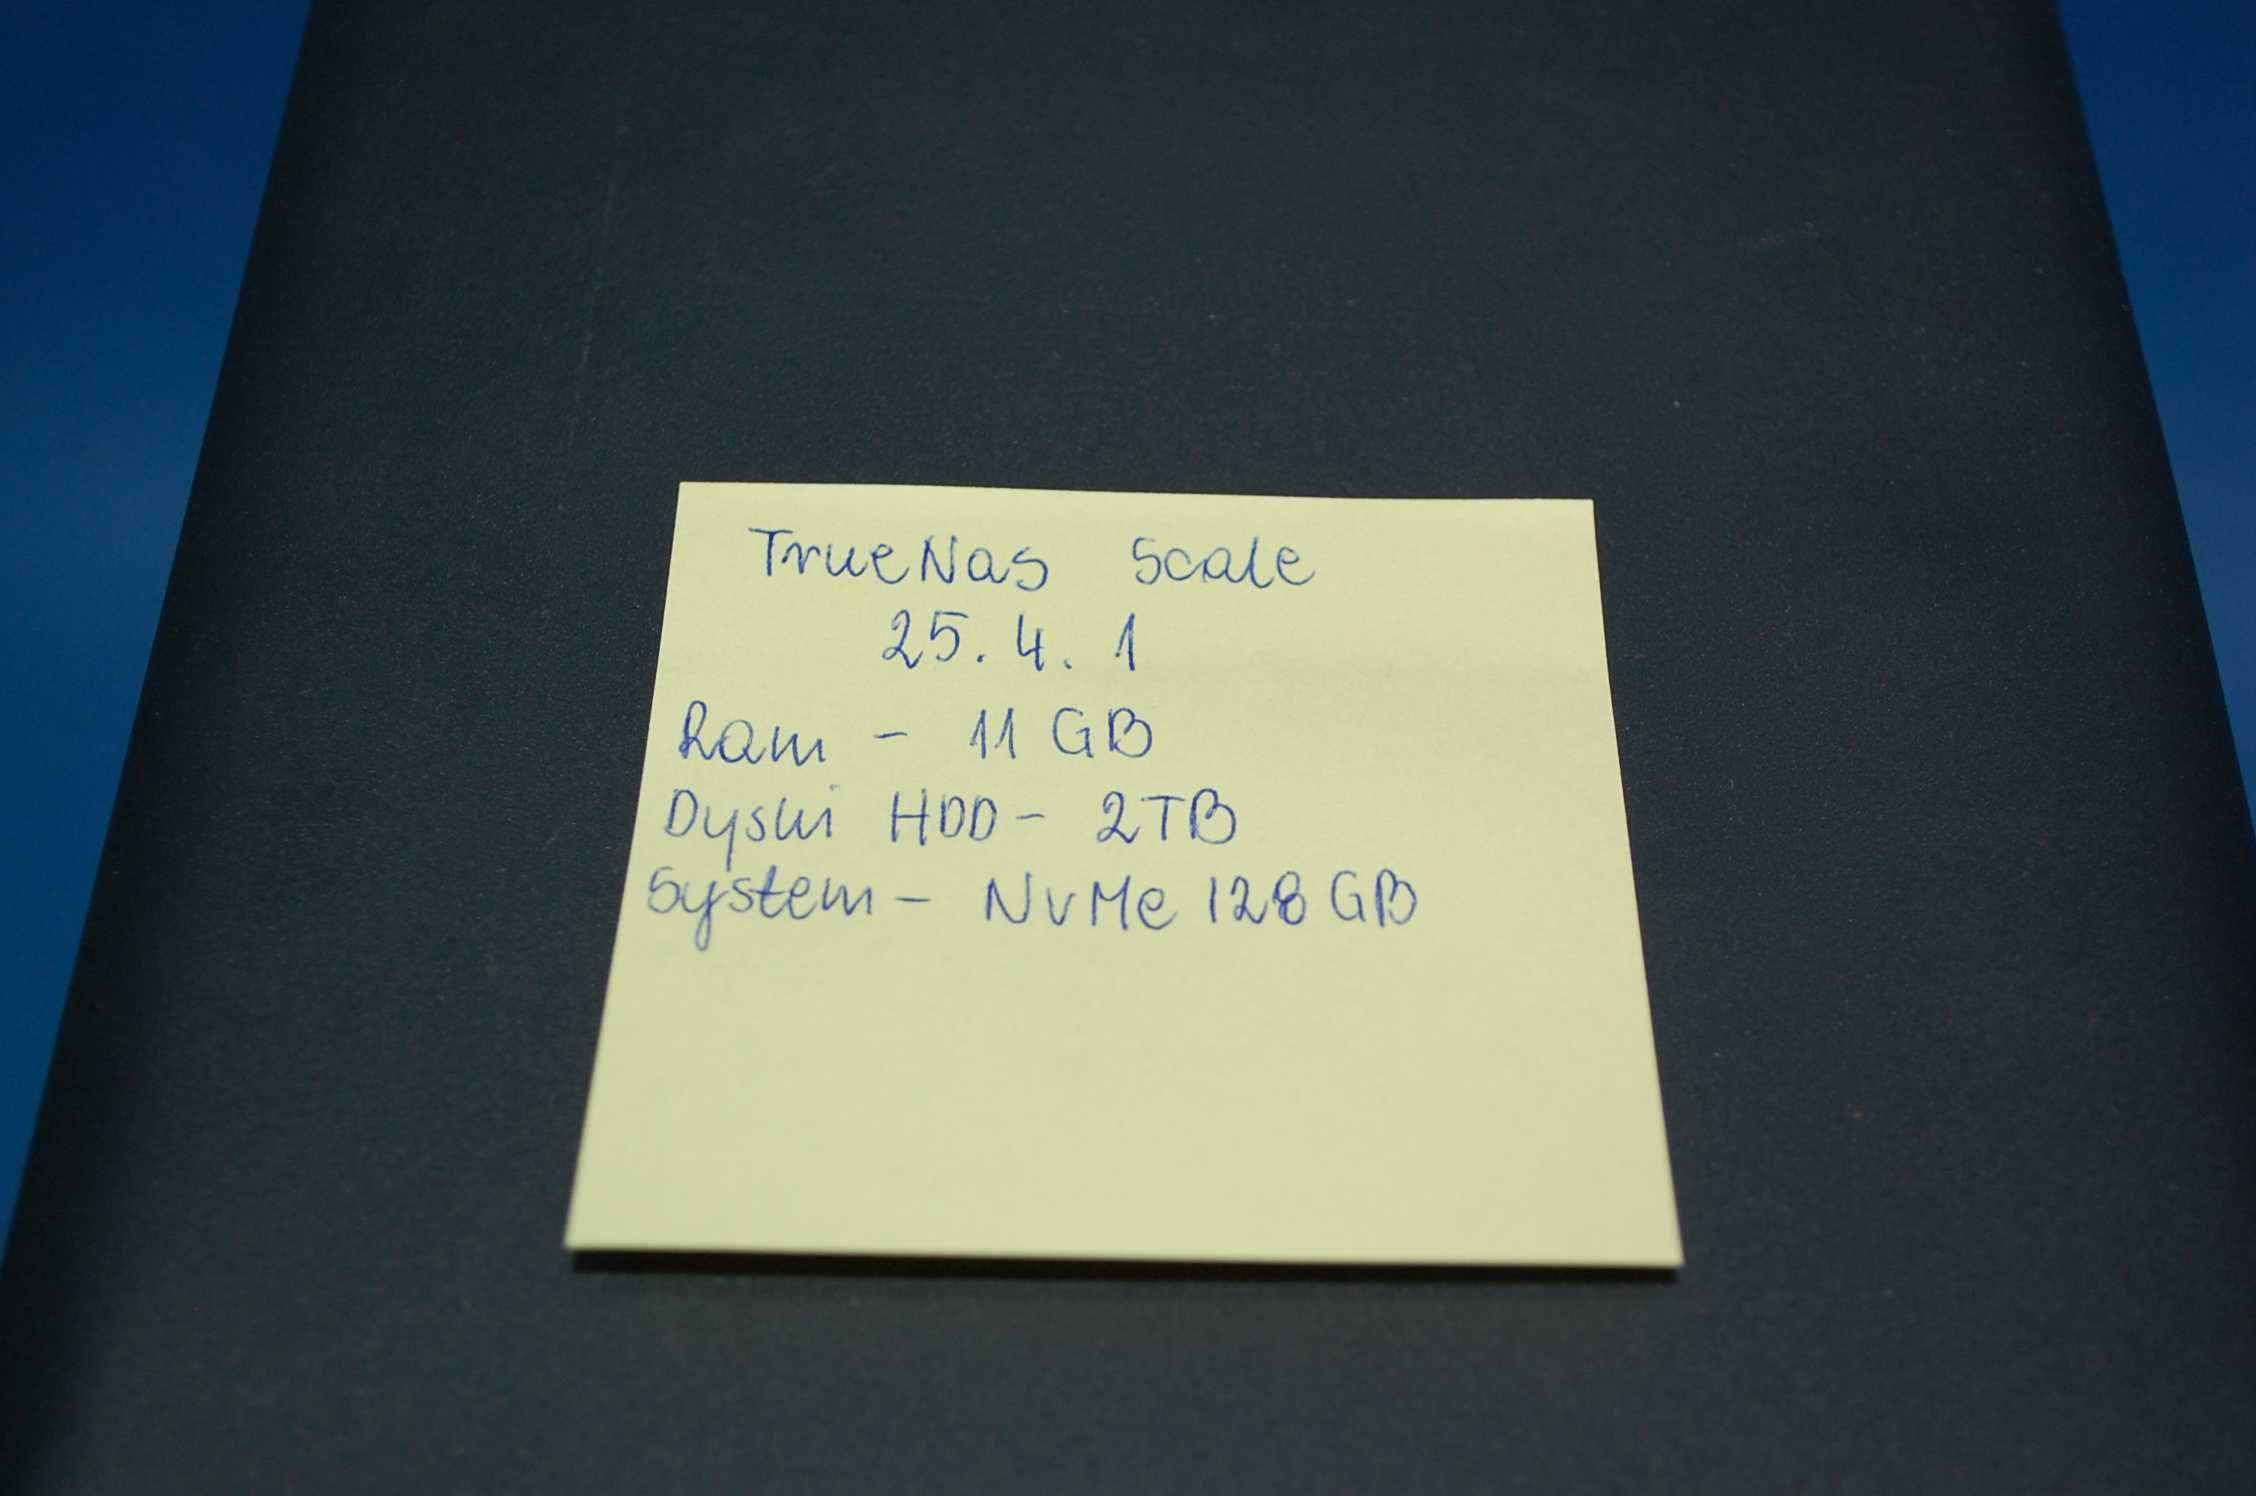 TrueNas Scale
25.4.1
Ram - 11 GB
Dyski HDD - 2TB
System - NvMe 128 GB